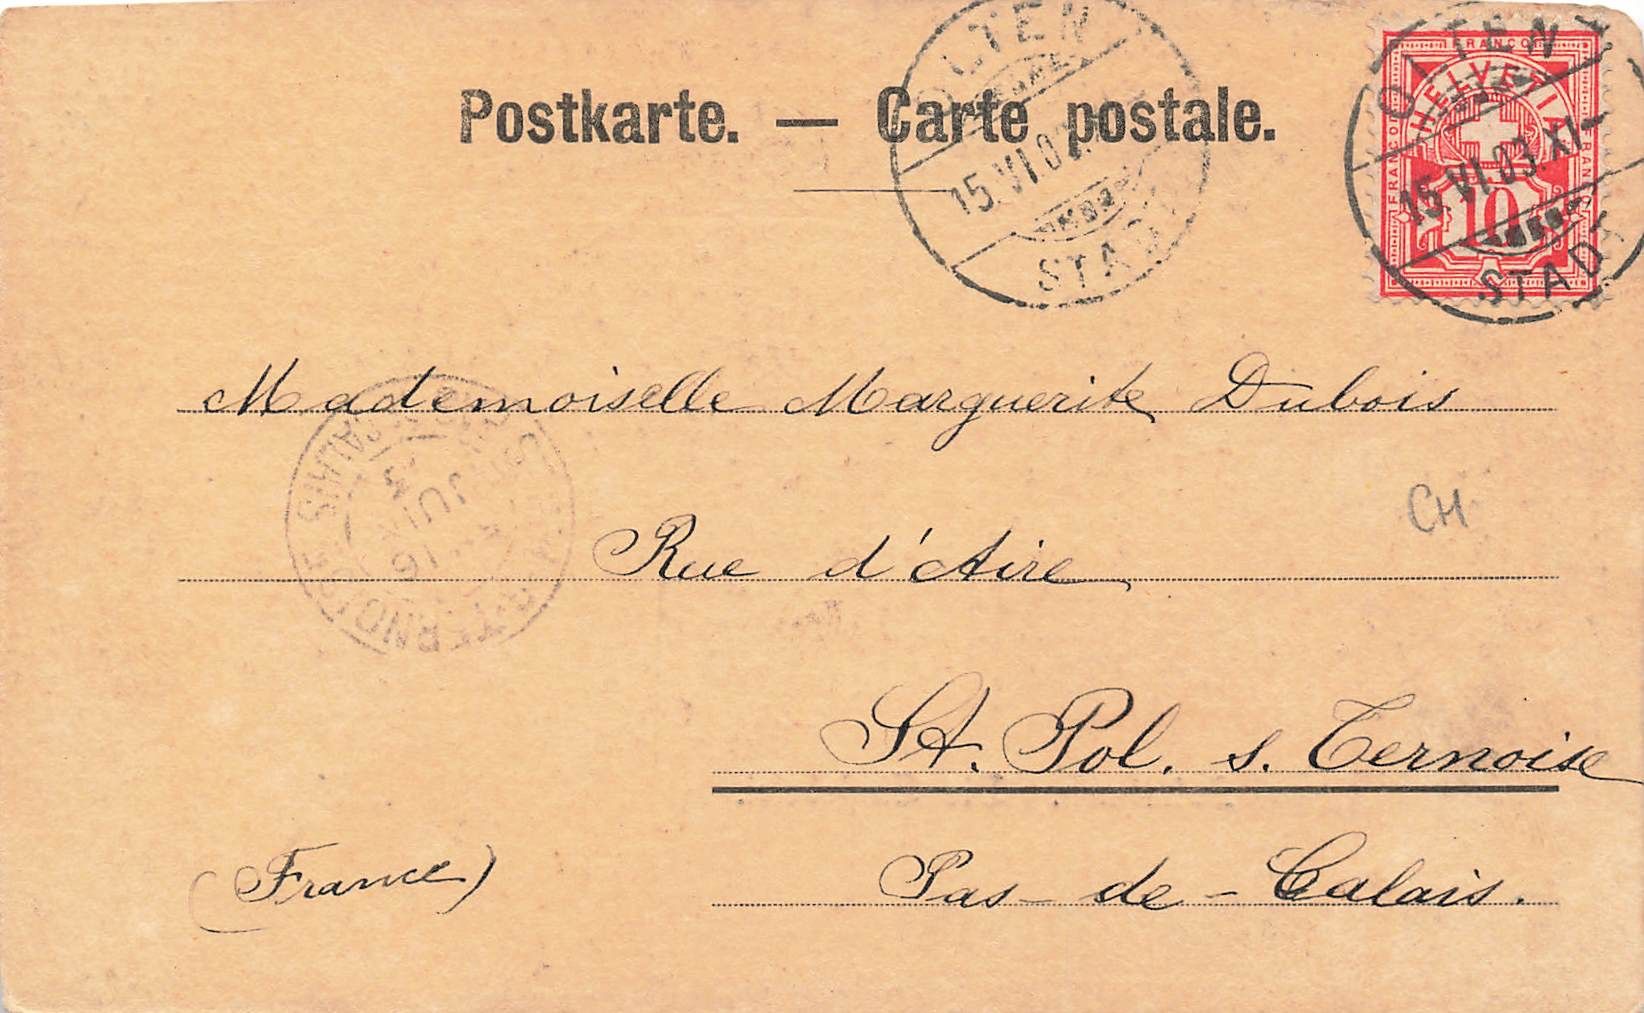 Postkarte. — Carte postale.
OLTEN
15.VI.03.
STADT
OLTEN
15.VI.03.XI
STADT
FRANCO
FRANCO
FRANCO
HELVETIA
10
Mademoiselle Marguerite Dubois
CH
Rue d'Aire
PAS DE CALAIS
16
JUIN
St. Pol. s. Ternoise
(France)
Pas-de-Calais.